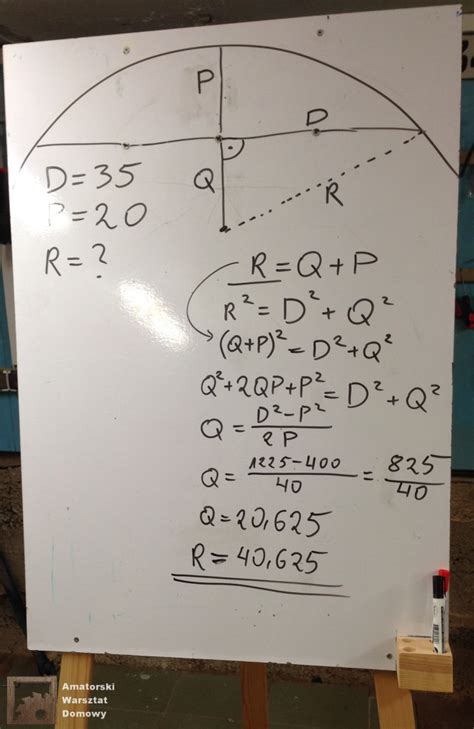 P
D
Q
R
D = 35
P = 20
R = ?
R = Q + P
R² = D² + Q²
(Q+P)² = D² + Q²
Q² + 2QP + P² = D² + Q²
Q = D² - P² / 2P
Q = 1225 - 400 / 40 = 825 / 40
Q = 20,625
R = 40,625
Amatorski
Warsztat
Domowy